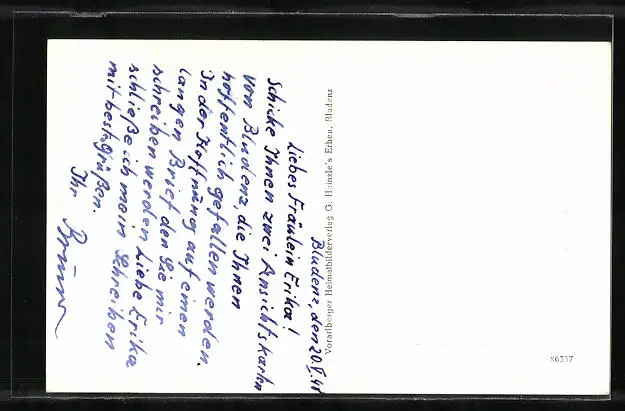 Bludenz, den 20.V.41
Liebes Fräulein Erika!
Schicke Ihnen zwei Ansichtskarten
von Bludenz, die Ihnen
hoffentlich gefallen werden.
In der Hoffnung auf einen
langen Brief den Sie mir
schreiben werden Liebe Erika
schließe ich mein Schreiben
mit best. grüßen.
Ihr
Vorarlberger Heimatbilderverlag G. Heinzle's Erben, Bludenz
S6317